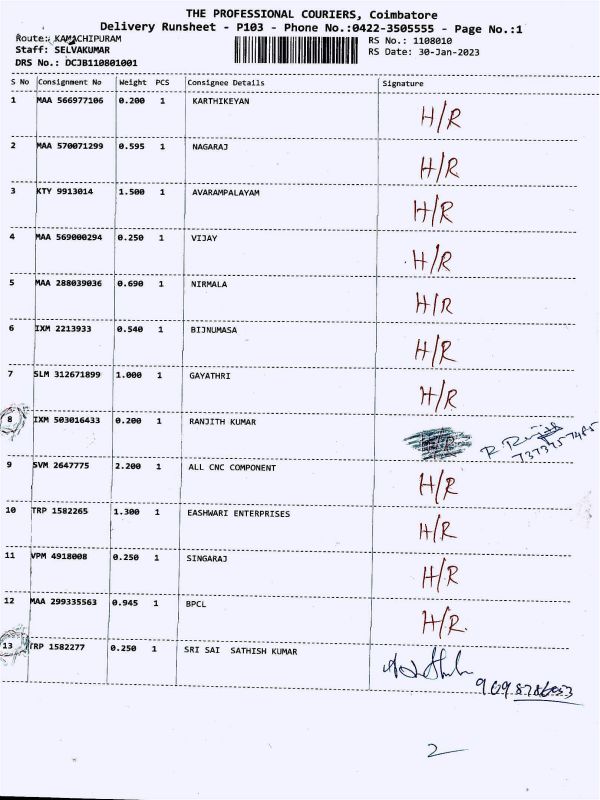 THE PROFESSIONAL COURIERS, Coimbatore
Delivery Runsheet - P103 - Phone No.:0422-3505555 - Page No.:1
Route: KAMACHIPURAM
RS No.: 1108010
Staff: SELVAKUMAR
RS Date: 30-Jan-2023
DRS No.: DCJB110801001
S No Consignment No Weight PCS Consignee Details Signature
1 MAA 566977106 0.200 1 KARTHIKEYAN H/R
2 MAA 570071299 0.595 1 NAGARAJ H/R
3 KTY 9913014 1.500 1 AVARAMPALAYAM H/R
4 MAA 569000294 0.250 1 VIJAY H/R
5 MAA 288039036 0.690 1 NIRMALA H/R
6 IXM 2213933 0.540 1 BIJNUMASA H/R
7 SLM 312671899 1.000 1 GAYATHRI H/R
8 IXM 503016433 0.200 1 RANJITH KUMAR
9 SVM 2647775 2.200 1 ALL CNC COMPONENT H/R
10 TRP 1582265 1.300 1 EASHWARI ENTERPRISES H/R
11 VPM 4918008 0.250 1 SINGARAJ H/R
12 MAA 299335563 0.945 1 BPCL H/R
13 TRP 1582277 0.250 1 SRI SAI SATHISH KUMAR
2